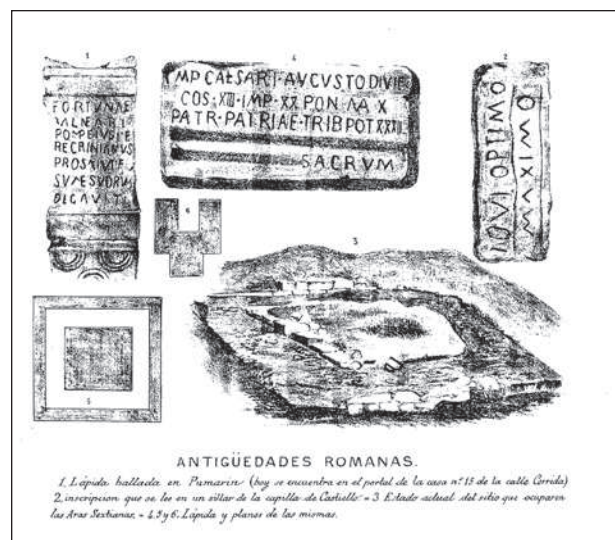 1
FORTVNAE
BALNEARI
POMPEIVS PE
RECRINIANVS
PRO SALVTE
SVA ESVORV
DICAVIT
4
MP CAESARI·AVGVSTO DIVI F
COS·XIII·IMP·XX PON MAX
PATR·PATRIAE·TRIB POT XXXII
SACRVM
2
IOVI OPTIMO
MAXIMO
6
3
5
ANTIGÜEDADES ROMANAS.
1, Lápida hallada en Pumarin (hoy se encuentra en el portal de la casa nº. 15 de la calle Corrida)
2, inscripcion que se lee en un sillar de la capilla de Castiello = 3 Estado actual del sitio que ocuparon
las Aras Sextianas. = 4, 5 y 6, Lápida y planos de las mismas.